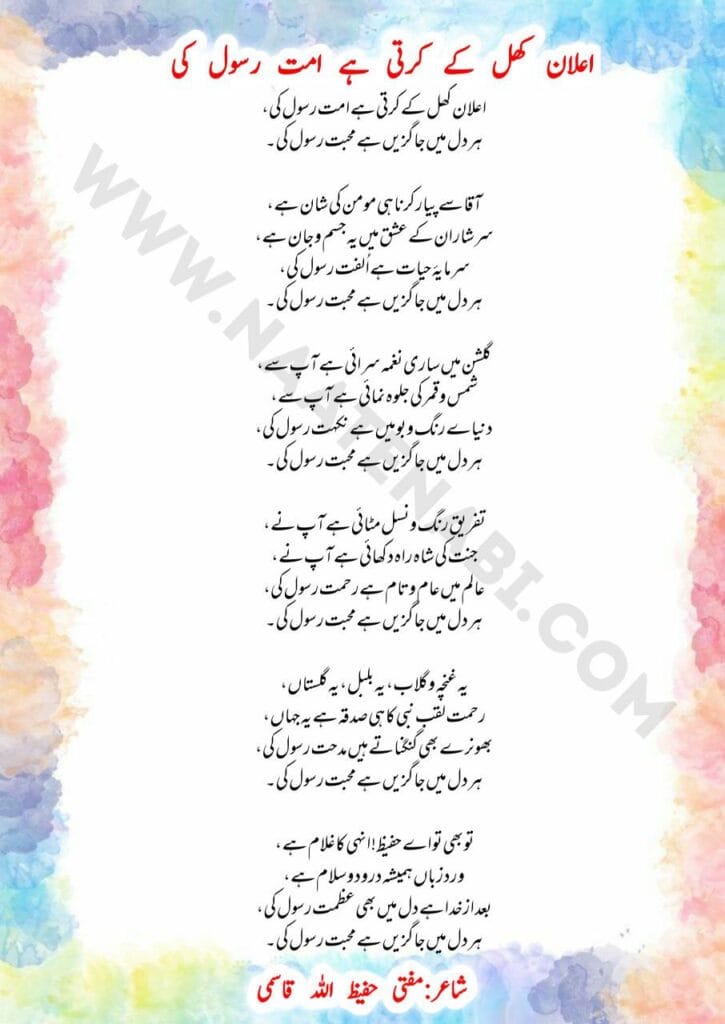 اعلان کھل کے کرتی ہے امت رسول کی
اعلان کھل کے کرتی ہے امت رسول کی،
ہر دل میں جاگزیں ہے محبت رسول کی۔
آقا سے پیار کرنا ہی مومن کی شان ہے،
سرشار ان کے عشق میں یہ جسم و جان ہے،
سرمایۂ حیات ہے اُلفت رسول کی،
ہر دل میں جاگزیں ہے محبت رسول کی۔
گلشن میں ساری نغمہ سرائی ہے آپ سے،
شمس و قمر کی جلوہ نمائی ہے آپ سے،
دنیاے رنگ و بو میں ہے نکہت رسول کی،
ہر دل میں جاگزیں ہے محبت رسول کی۔
تفریقِ رنگ و نسل مٹائی ہے آپ نے،
جنت کی شاہ راہ دکھائی ہے آپ نے،
عالم میں عام و تام ہے رحمت رسول کی،
ہر دل میں جاگزیں ہے محبت رسول کی۔
یہ غنچہ و گلاب، یہ بلبل، یہ گلستاں،
رحمت لقب نبی کا ہی صدقہ ہے یہ جہاں،
بھونرے بھی گنگناتے ہیں مدحت رسول کی،
ہر دل میں جاگزیں ہے محبت رسول کی۔
تو بھی تو اے حفیظ! انہی کا غلام ہے،
وردِ زباں ہمیشہ درود و سلام ہے،
بعد از خدا ہے دل میں بھی عظمت رسول کی،
ہر دل میں جاگزیں ہے محبت رسول کی۔
شاعر: مفتی حفیظ اللہ قاسمی
WWW.NAATENABI.COM